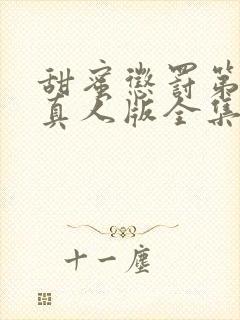 甜蜜懲罰第
真人版全集
十一塵